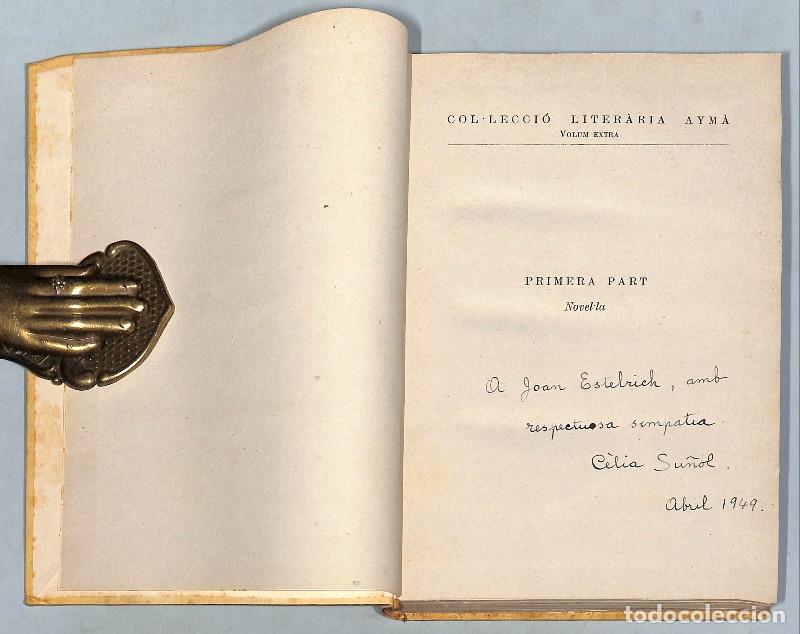 COL·LECCIÓ LITERÀRIA AYMÀ
VOLUM EXTRA
PRIMERA PART
Novel·la
A Joan Estelrich, amb
respectuosa simpatia.
Cèlia Suñol.
Abril 1949.
todocoleccion